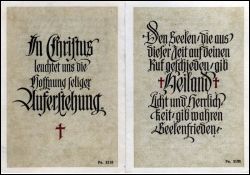 In Christus
leuchtet uns die
Hoffnung seliger
Auferstehung.
Den Seelen, die aus
dieser Zeit auf deinen
Ruf geschieden, gib
Heiland
Licht und Herrlich
keit, gib wahren
Seelenfrieden.